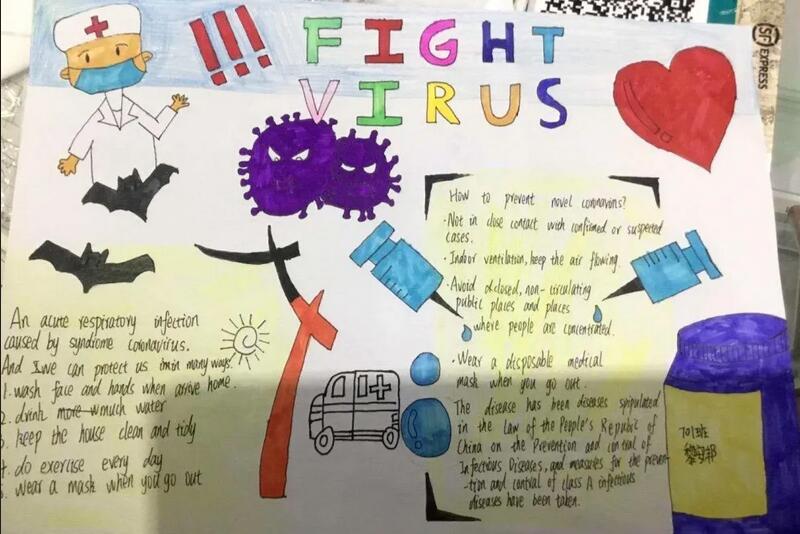 !!! FIGHT
VIRUS
SF EXPRESS
How to prevent novel coronavirus?
·Not in close contact with confirmed or suspected
cases.
·Indoor ventilation, keep the air flowing.
·Avoid closed, non-circulating
public places and places
where people are concentrated.
·Wear a disposable medical
mask when you go out.
The disease has been diseases stipulated
in the Law of the People's Republic of
China on the Prevention and control of
Infectious Diseases, and measures for the preven-
-tion and control of class A infectious
diseases have been taken.
An acute respiratory infection
caused by syndrome coronavirus.
And I we can protect us in many ways.
1. wash face and hands when arrive home.
2. drink more much water
3. keep the house clean and tidy
4. do exercise every day
5. wear a mask when you go out
701班